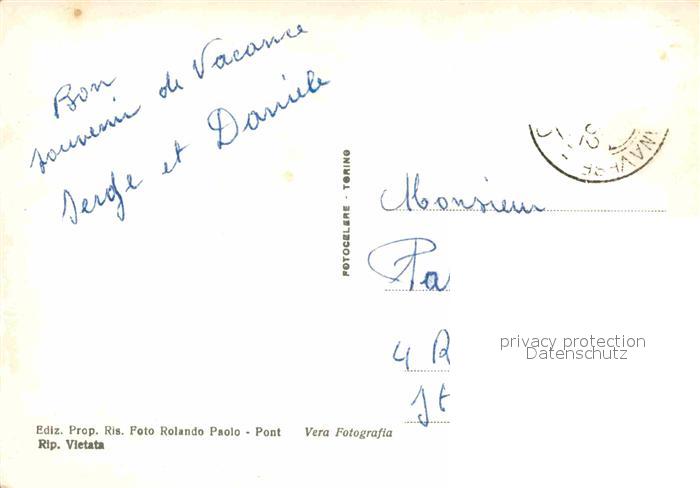 Bon
souvenir de Vacance
Serge et Daniele
FOTOCELERE - TORINO
Monsieur
Pa
4 R
It
privacy protection
Datenschutz
Ediz. Prop. Ris. Foto Rolando Paolo - Pont Vera Fotografia
Rip. Vietata